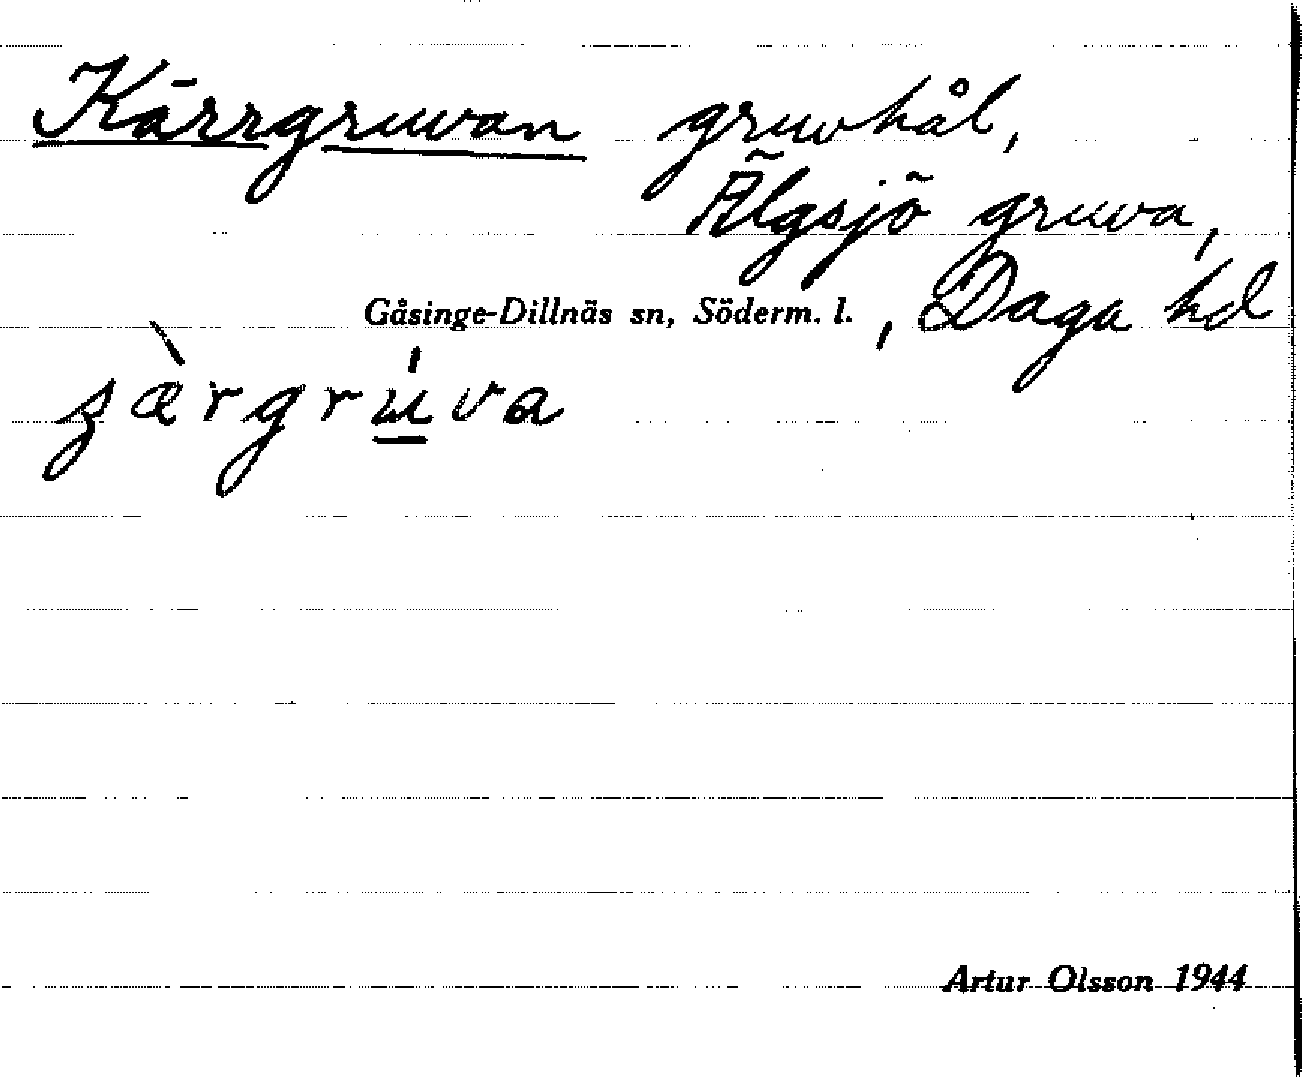 Kärrgruvan gruvhål,
Älgsjö gruva,
Gåsinge-Dillnäs sn, Söderm. l., Daga hd
Artur Olsson 1944